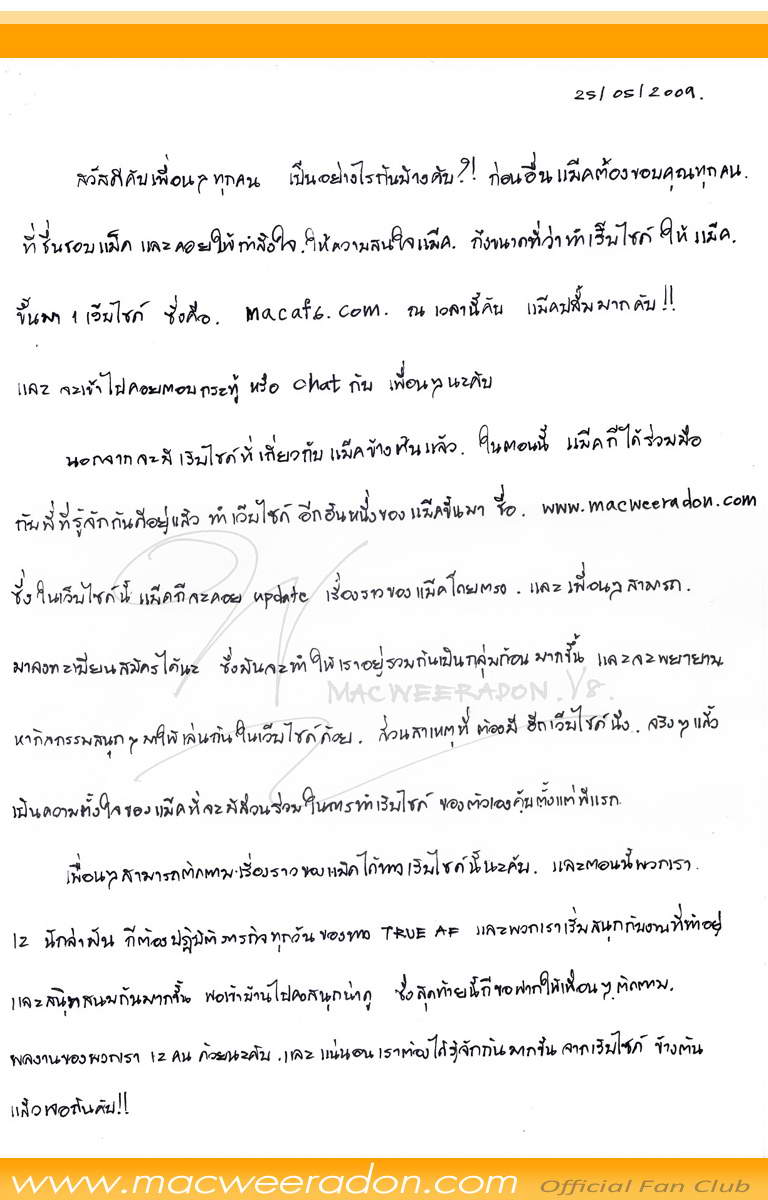 25/05/2009.
สวัสดีคับเพื่อนๆ ทุกคน เป็นอย่างไรกันบ้างคับ?! ก่อนอื่นแม็คต้องขอบคุณทุกคน.
ที่ชื่นชอบแม็ค และคอยให้กำลังใจ.ให้ความสนใจแม็ค. ถึงขนาดที่ว่าทำเว็บไซด์ ให้แม็ค.
ขึ้นมา 1 เว็บไซด์ ซึ่งคือ. macaf6.com. ณ เวลานี้คับ แม็คปลื้มมากคับ!!
และ จะเข้าไปคอยตอบกระทู้ หรือ chat กับ เพื่อนๆนะคับ
นอกจากจะมีเว็บไซด์ที่เกี่ยวกับแม็คข้างต้นแล้ว. ในตอนนี้ แม็คก็ได้ร่วมมือ
กับพี่ที่รู้จักกันดีอยู่แล้ว ทำเว็บไซด์ อีกอันหนึ่งของแม็คขึ้นมา ชื่อ. www.macweeradon.com
ซึ่งในเว็บไซด์นี้ แม็คก็จะคอย update เรื่องราวของแม็คโดยตรง. และเพื่อนๆสามารถ.
มาลงทะเบียนสมัครได้นะ ซึ่งมันจะทำให้เราอยู่รวมกันเป็นกลุ่มก้อนมากขึ้น และจะพยายาม
MACWEERADON.V8.
หากิจกรรมสนุกๆ มาให้เล่นกันในเว็บไซด์ด้วย. ส่วนสาเหตุที่ต้องมี อีกเว็บไซด์นึง. จริงๆแล้ว
เป็นความตั้งใจของแม็คที่จะมีส่วนร่วมในการทำเว็บไซด์ ของตัวเองคับตั้งแต่ทีแรก.
เพื่อนๆสามารถติดตาม.เรื่องราวของแม็คได้ทางเว็บไซด์นี้นะคับ. และตอนนี้พวกเรา.
12 นักล่าฝัน ก็ต้องปฏิบัติภารกิจทุกวันของทาง TRUE AF และพวกเราเริ่มสนุกกับงานที่ทำอยู่
และสนิทสนมกันมากขึ้น พอเข้าบ้านไปคงสนุกน่าดู ซึ่งสุดท้ายนี้ก็ขอฝากให้เพื่อนๆ.ติดตาม.
ผลงานของพวกเรา 12 คน ด้วยนะคับ.และ แน่นอนเราต้องได้รู้จักกันมากขึ้น จากเว็บไซด์ ข้างต้น
แล้วเจอกันคับ!!
www.macweeradon.com Official Fan Club